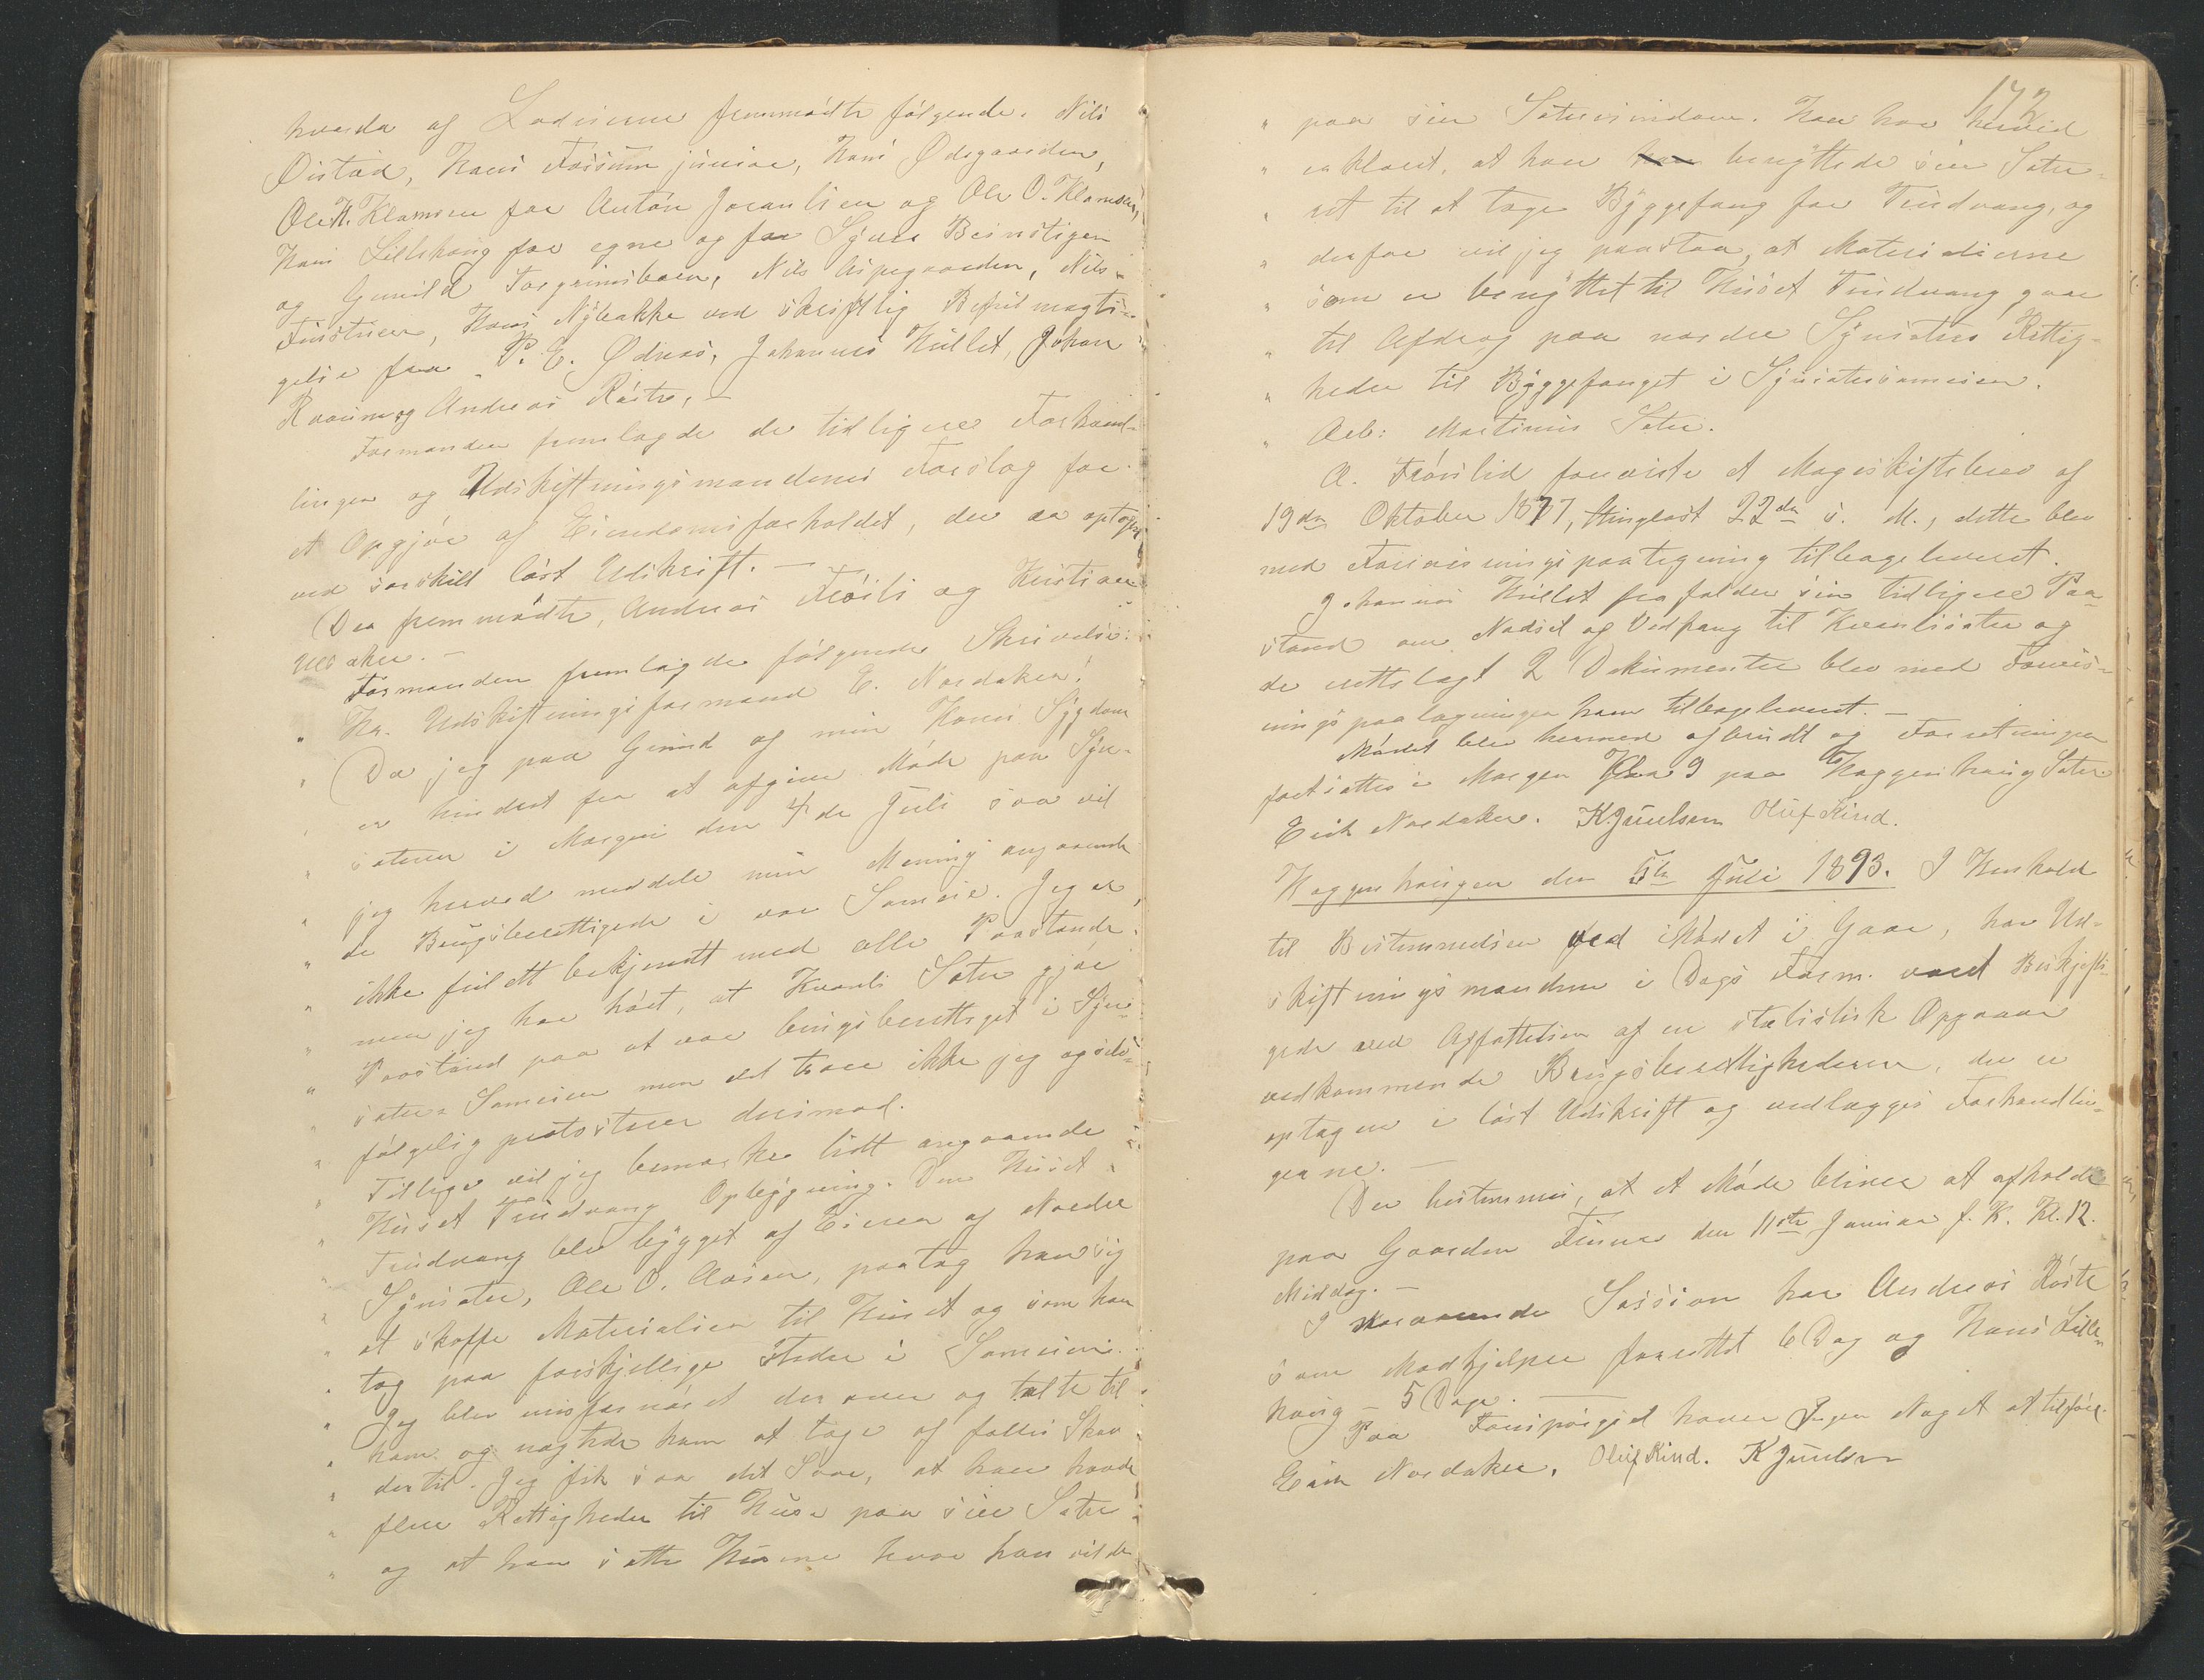 hvorda af Lodeierne fremmødte følgende. Nils
Øistad, Hans Fossum junior, Hans Ødegaarden,
Ole K. Klomsen for Anton Joranlien og Ole O. Klomsen,
Hans Lillehaug for egne og for Syver Beinstigen
og Gunild Torgrimsbøen, Nils Øipegaarden, Nils
Finstuen, Hans Nybakke ved skriftlig Befulmægti-
gelse fra P. E. Ødnæs, Johannes Hullet, Johan
Kraum og Andreas Røste, —
Formanden fremlagde de tidligere Forhand-
linger og Udskiftningsmandenes Forslag for
et Opgjør af Eiendomsforholdet, der er optagen
ved særskilt løst Udskrift. —
Der fremmødte, Andreas Frøsli og Kristian
Ulsaker. —
Formanden fremlagde følgende Skrivelse:
" Hr. Udskiftningsformand E. Nordaker!
" Da jeg paa Grund af min Kones Sygdom
" er hindret fra at afgive Møde paa Syn-
" sæteren i Morgen den 4de Juli saa vil
" jeg herved meddele min Mening angaaende
" de Brugsberettigede i vor Sameie. Jeg er
" ikke fuldt bekjendt med alle Paastande.
" men jeg har hørt, at Kvarli Sæter gjør
" Paastand paa at være brugsberettiget i Syn-
" sæter Sameien men det troer ikke jeg og selv-
" følgelig protesterer derimod.
" Tillige vil jeg bemærke lidt angaaende
" Huset Trudvang Opbygning. Den Huset
" Trudvang blev bygget af Eieren af Nordre
" Synsæter, Ole O. Aasen, paatog han sig
" at skaffe Materialier til Huset og som han
" tog paa forskjellige Steder i Sameiet.
" Jeg blev misfornøiet der over og talte til
" ham og nægtede ham at tage af fælles Skov
" dertil. Jeg fik saa det Svar, at han havde
" flere Rettigheder til Huse paa sin Sæter
" og at han satte Husene hvor han vilde
172
" paa sin Sætereiendom. Han har herved
" erklæret, at han benyttede sin Sæter-
" ret til at tage Byggefang for Trudvang, og
" derfor vil jeg paastaa, at Materialierne
" som er benyttet til Huset Trudvang gaar
" til Afdrag paa nordre Synsæters Rettig-
" heder til Byggefanget i Synsætersameien.
" Arb: Martinus Sæter.
A. Frøislid foreviste et Mageskiftebrev af
19de Oktober 1877, thinglæst 22de s. M., dette blev
med Forevisningspaategning tilbageleveret.
Johannes Hullet frafalder sin tidligere Paa-
stand om Nødsel og Vedfang til Kvarlisæter og
de rettslagt 2 Dokumenter blev med Forevis-
ningspaategninger ham tilbageleveret. —
Mødet blev hermed afbrudt og Forretningen
fortsættes i Morgen Kl. 9 paa Haggenhaug Sæter.
Erik Nordaker. K. Juulsen Oluf Kind.
Haggenhaugen den 5te Juli 1893. I Henhold
til Bestemmelsen ved Mødet i Gaar, har Ud-
skiftningsmændene i Dags Form. været Beskjæfti-
gede ved Affattelsen af en statistisk Opgaave
vedkommende Brugsberettighederne, der er
optagen i løst Udskrift og vedlægges Forhandlin-
gerne. —
Der bestemmes, at et Møde bliver at afholde
paa Gaarden Finna den 11te Januar f. K. Kl. 12.
Middag. —
I nærværende Session har Andreas Røste
som Madhjelper forrettet 6 Dag og Hans Lille-
haug — 5 Dage. —
Paa Forespørgsel havde Ingen Noget at tilføie.
Erik Nordaker. Oluf Kind. K Juulsen